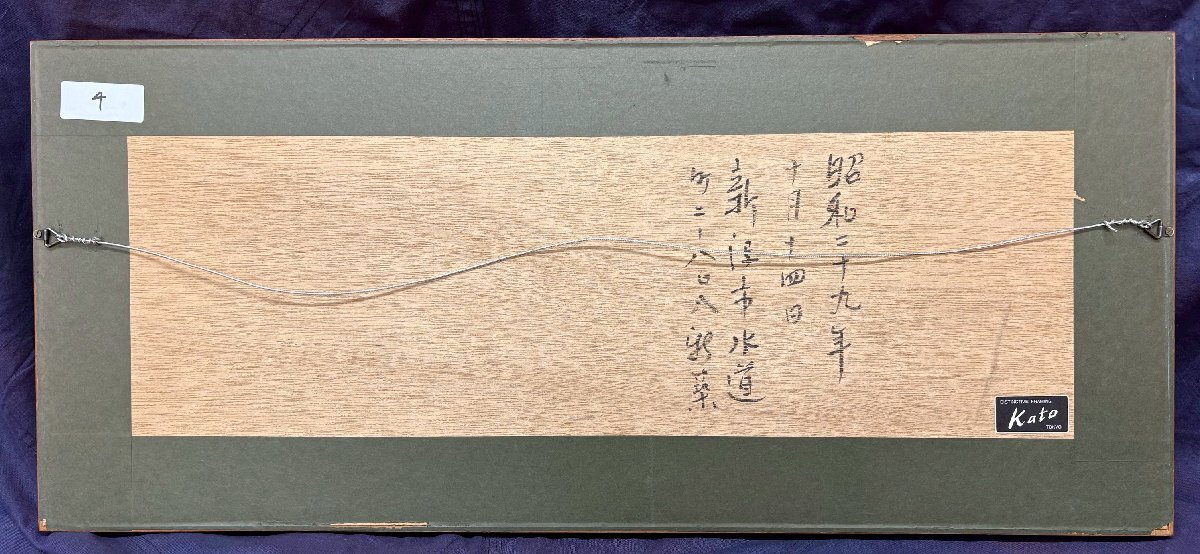 4
昭和二十九年
十月十四日
新潟市水道
町二ノ八〇八新築
DISTINCTIVE FRAMING
Kato
TOKYO